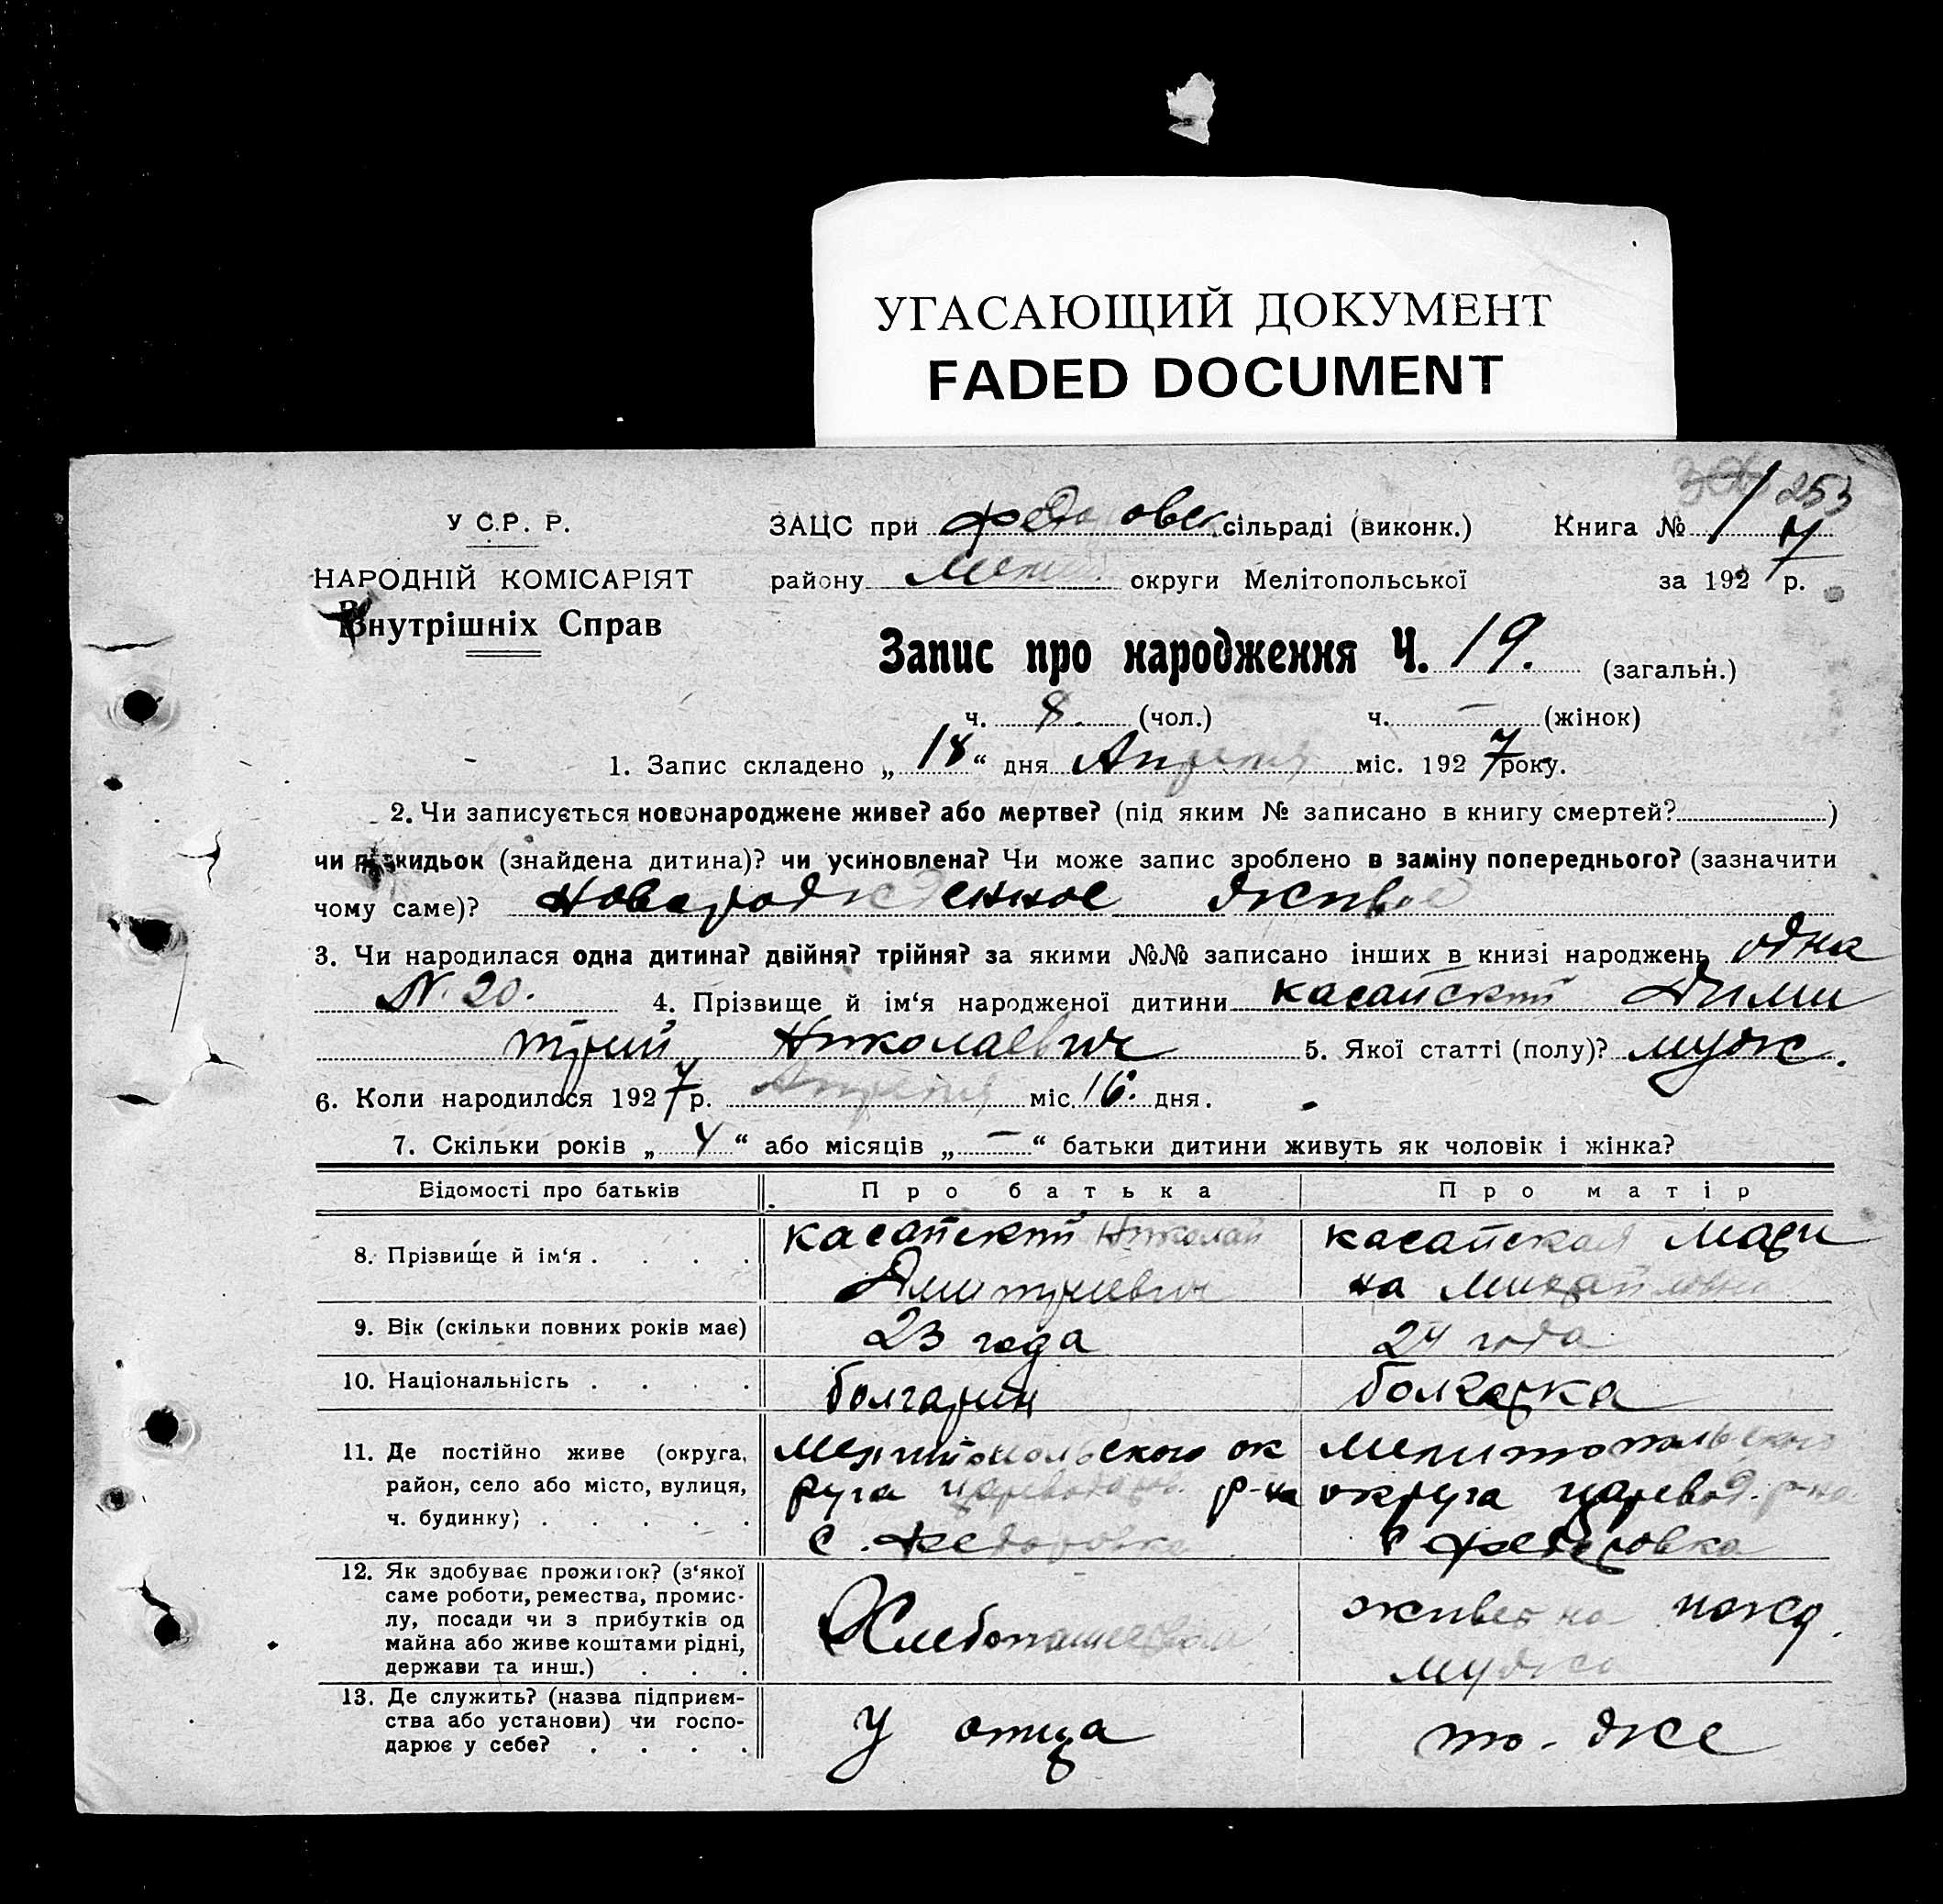 УГАСАЮЩИЙ ДОКУМЕНТ
FADED DOCUMENT
253
У С.Р. Р.
НАРОДНІЙ КОМІСАРІЯТ
Внутрішніх Справ
ЗАЦС при Федоровск. сільраді (виконк.) Книга № 1
району округи Мелітопольської за 1927 р.
Запис про народження Ч. 19. (загальн.)
ч. 8. (чол.) ч. – (жінок)
1. Запис складено „ 18 “ дня Апреля міс. 1927 року.
2. Чи записується новонароджене живе? або мертве? (під яким № записано в книгу смертей? )
чи підкидьок (знайдена дитина)? чи усиновлена? Чи може запис зроблено в заміну попереднього? (зазначити
чому саме)? Новорожденное живое
3. Чи народилася одна дитина? двійня? трійня? за якими №№ записано інших в книзі народжень одна
N. 20. 4. Прізвище й ім‘я народженої дитини Касайский Дими
трий Николаевич 5. Якої статті (полу)? муж.
6. Коли народилося 1927 р. Апреля міс. 16. дня.
7. Скільки років „ 4 “ або місяців „ – “ батьки дитини живуть як чоловік і жінка?
Відомості про батьків Про батька Про матір
8. Прізвище й ім‘я . . . . Касайский Николай Касайская Мари
Дмитриевич на Михайловна
9. Вік (скільки повних років має) 23 года 24 года
10. Національність . . . . болгарин болгарка
11. Де постійно живе (округа, Мелитопольского ок Мелитопольского
район, село або місто, вулиця, руга царевод р-на округа царевод. р-на
ч. будинку) . . . . . с. Федоровка с Федоровка
12. Як здобуває прожиток? (з‘якої
саме роботи, ремества, промис-
лу, посади чи з прибутків од
майна або живе коштами рідні,
держави та инш.) . . .
Хлебопашество
живет на
мужа
13. Де служить? (назва підприєм-
ства або установи) чи госпо-
дарює у себе? . . . .
у отца
то-же